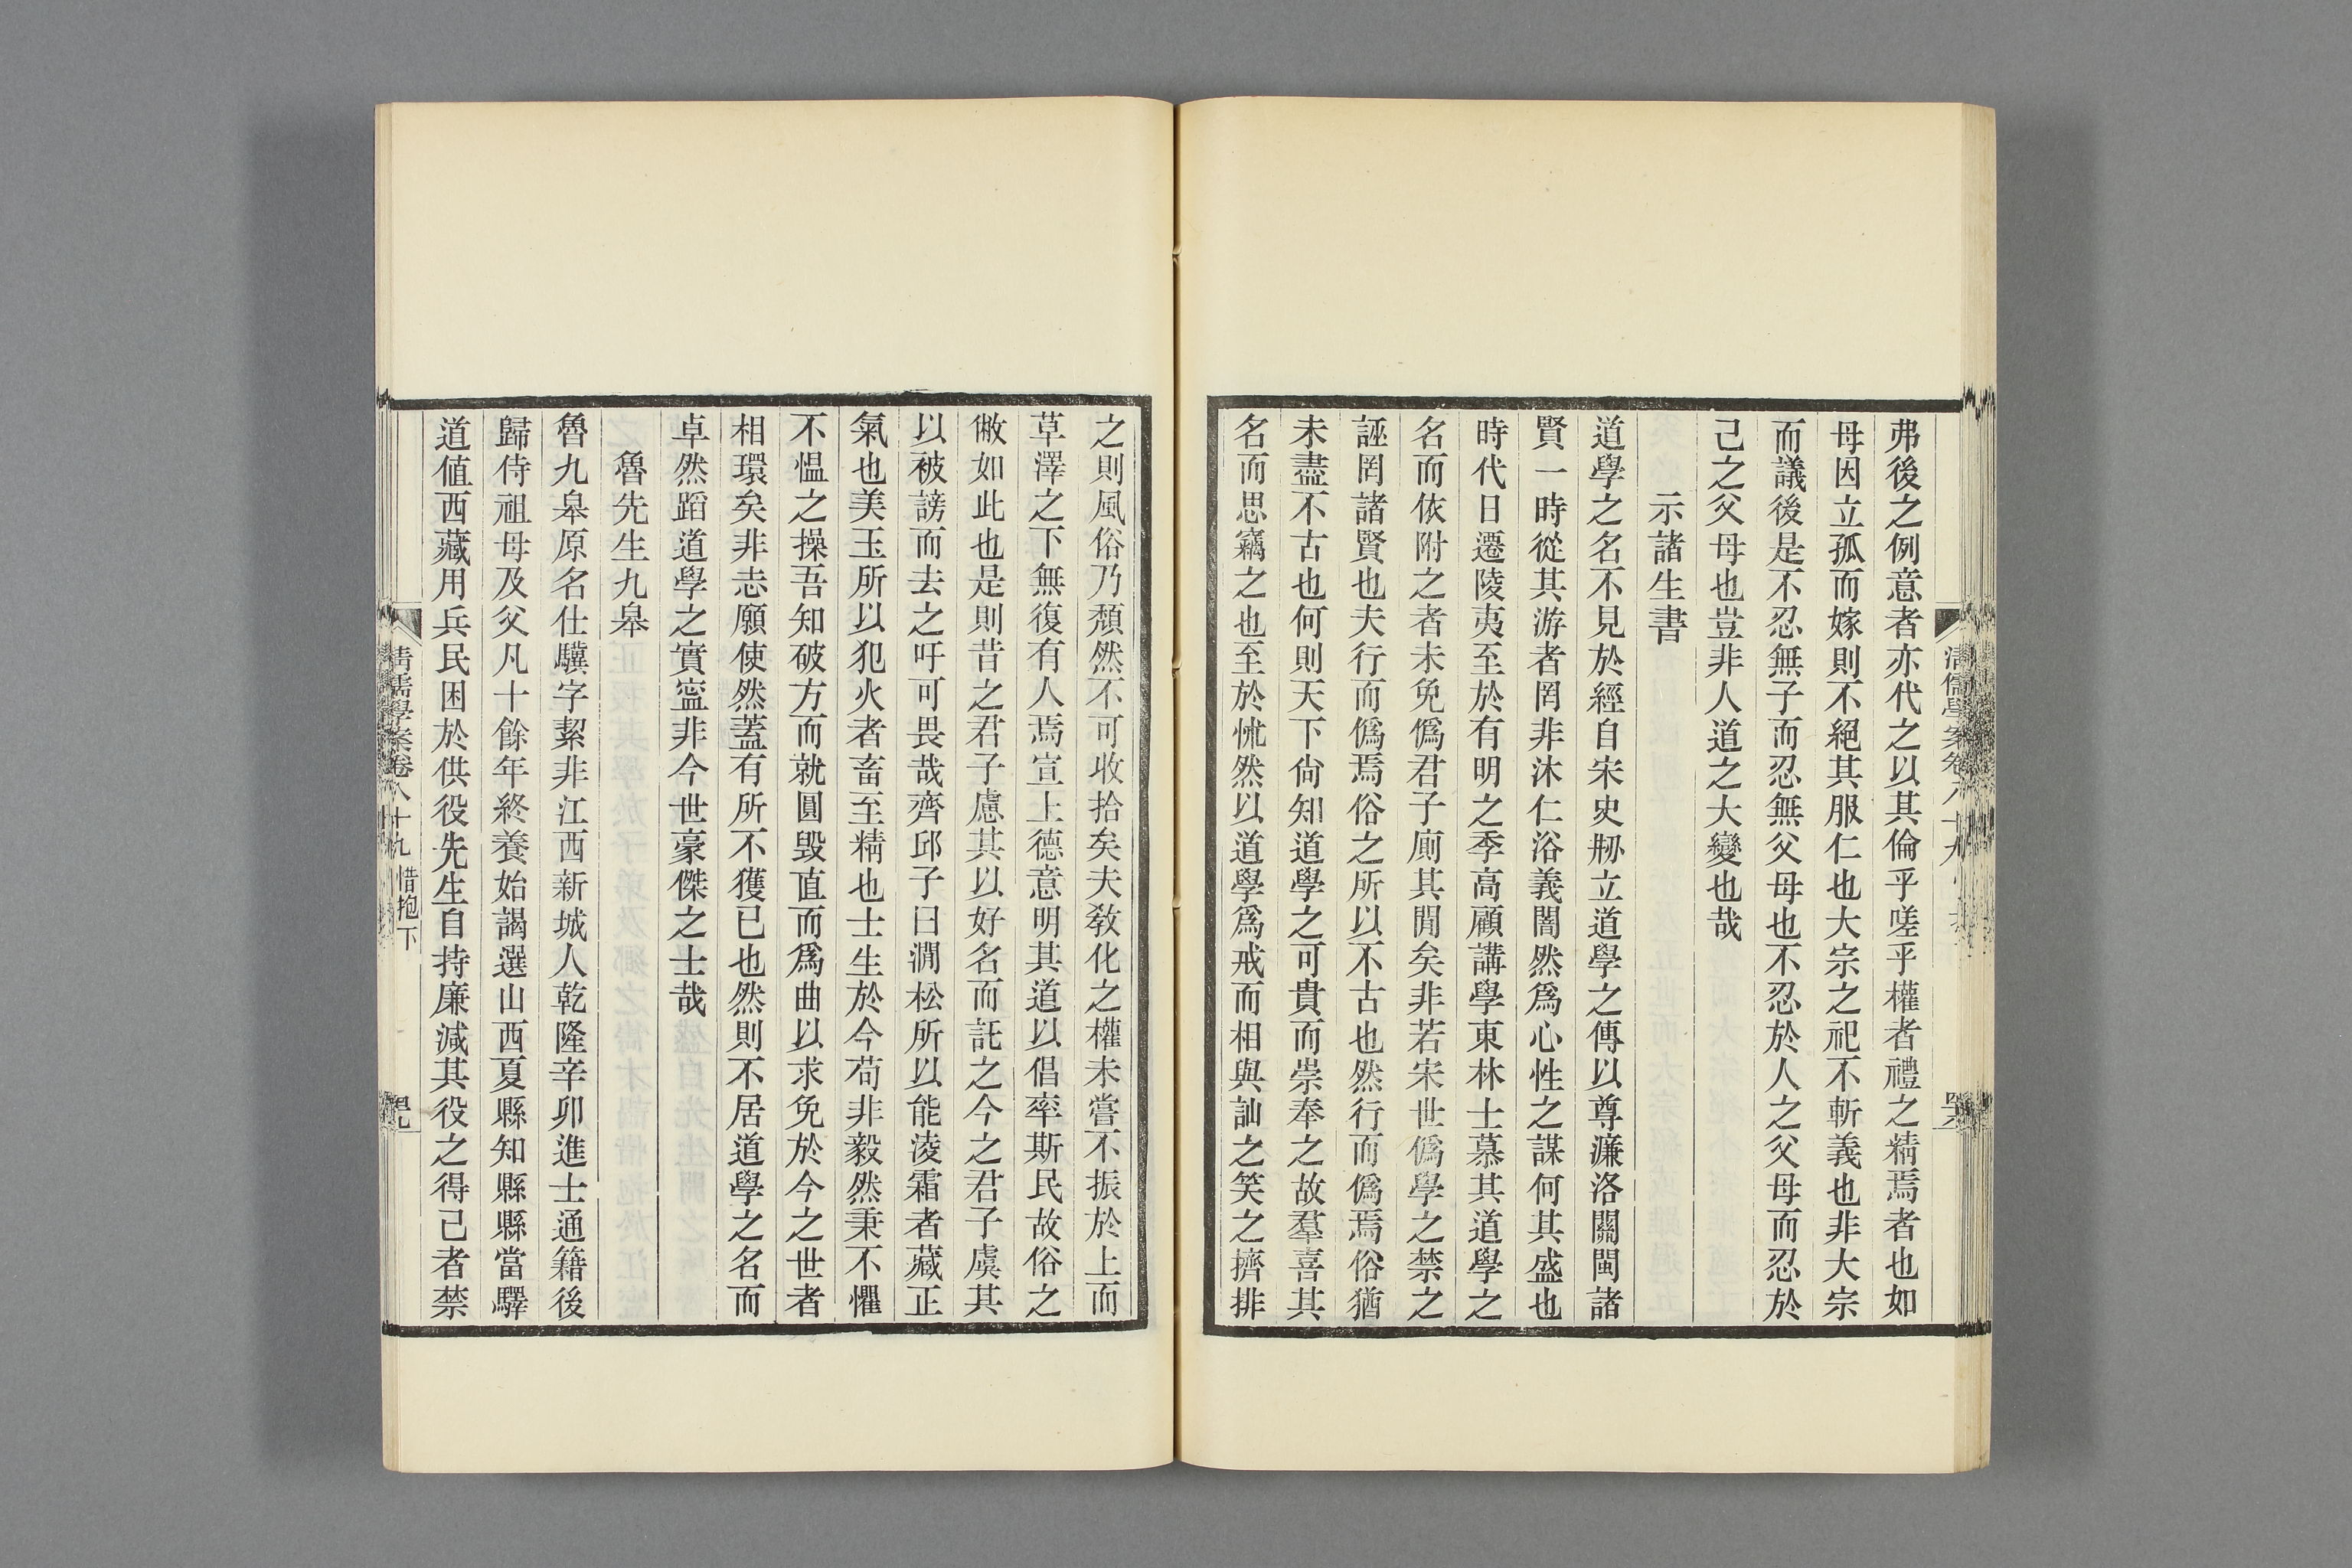 弗後之例意者亦代之以其倫乎嗟乎權者禮之精焉者也如
母因立孤而嫁則不絕其服仁也大宗之祀不斬義也非大宗
而議後是不忍無子而忍無父母也不忍於人之父母而忍於
己之父母也豈非人道之大變也哉
示諸生書
道學之名不見於經自宋史刱立道學之傳以尊濂洛關閩諸
賢一時從其游者罔非沐仁浴義闇然爲心性之謀何其盛也
時代日遷陵夷至於有明之季高顧講學東林士慕其道學之
名而依附之者未免僞君子廁其閒矣非若宋世僞學之禁之
誣罔諸賢也夫行而僞焉俗之所以不古也然行而僞焉俗猶
未盡不古也何則天下尙知道學之可貴而崇奉之故羣喜其
名而思竊之也至於怵然以道學爲戒而相與訕之笑之擠排
之則風俗乃頹然不可收拾矣夫敎化之權未嘗不振於上而
草澤之下無復有人焉宣上德意明其道以倡率斯民故俗之
敝如此也是則昔之君子慮其以好名而託之今之君子虞其
以被謗而去之吁可畏哉齊邱子曰澗松所以能淩霜者藏正
氣也美玉所以犯火者畜至精也士生於今苟非毅然秉不懼
不慍之操吾知破方而就圓毀直而爲曲以求免於今之世者
相環矣非志願使然蓋有所不獲已也然則不居道學之名而
卓然蹈道學之實寍非今世豪傑之士哉
魯先生九皋
魯九皋原名仕驥字絜非江西新城人乾隆辛卯進士通籍後
歸侍祖母及父凡十餘年終養始謁選山西夏縣知縣縣當驛
道値西藏用兵民困於供役先生自持廉減其役之得已者禁
清儒學案卷八十九 惜抱下